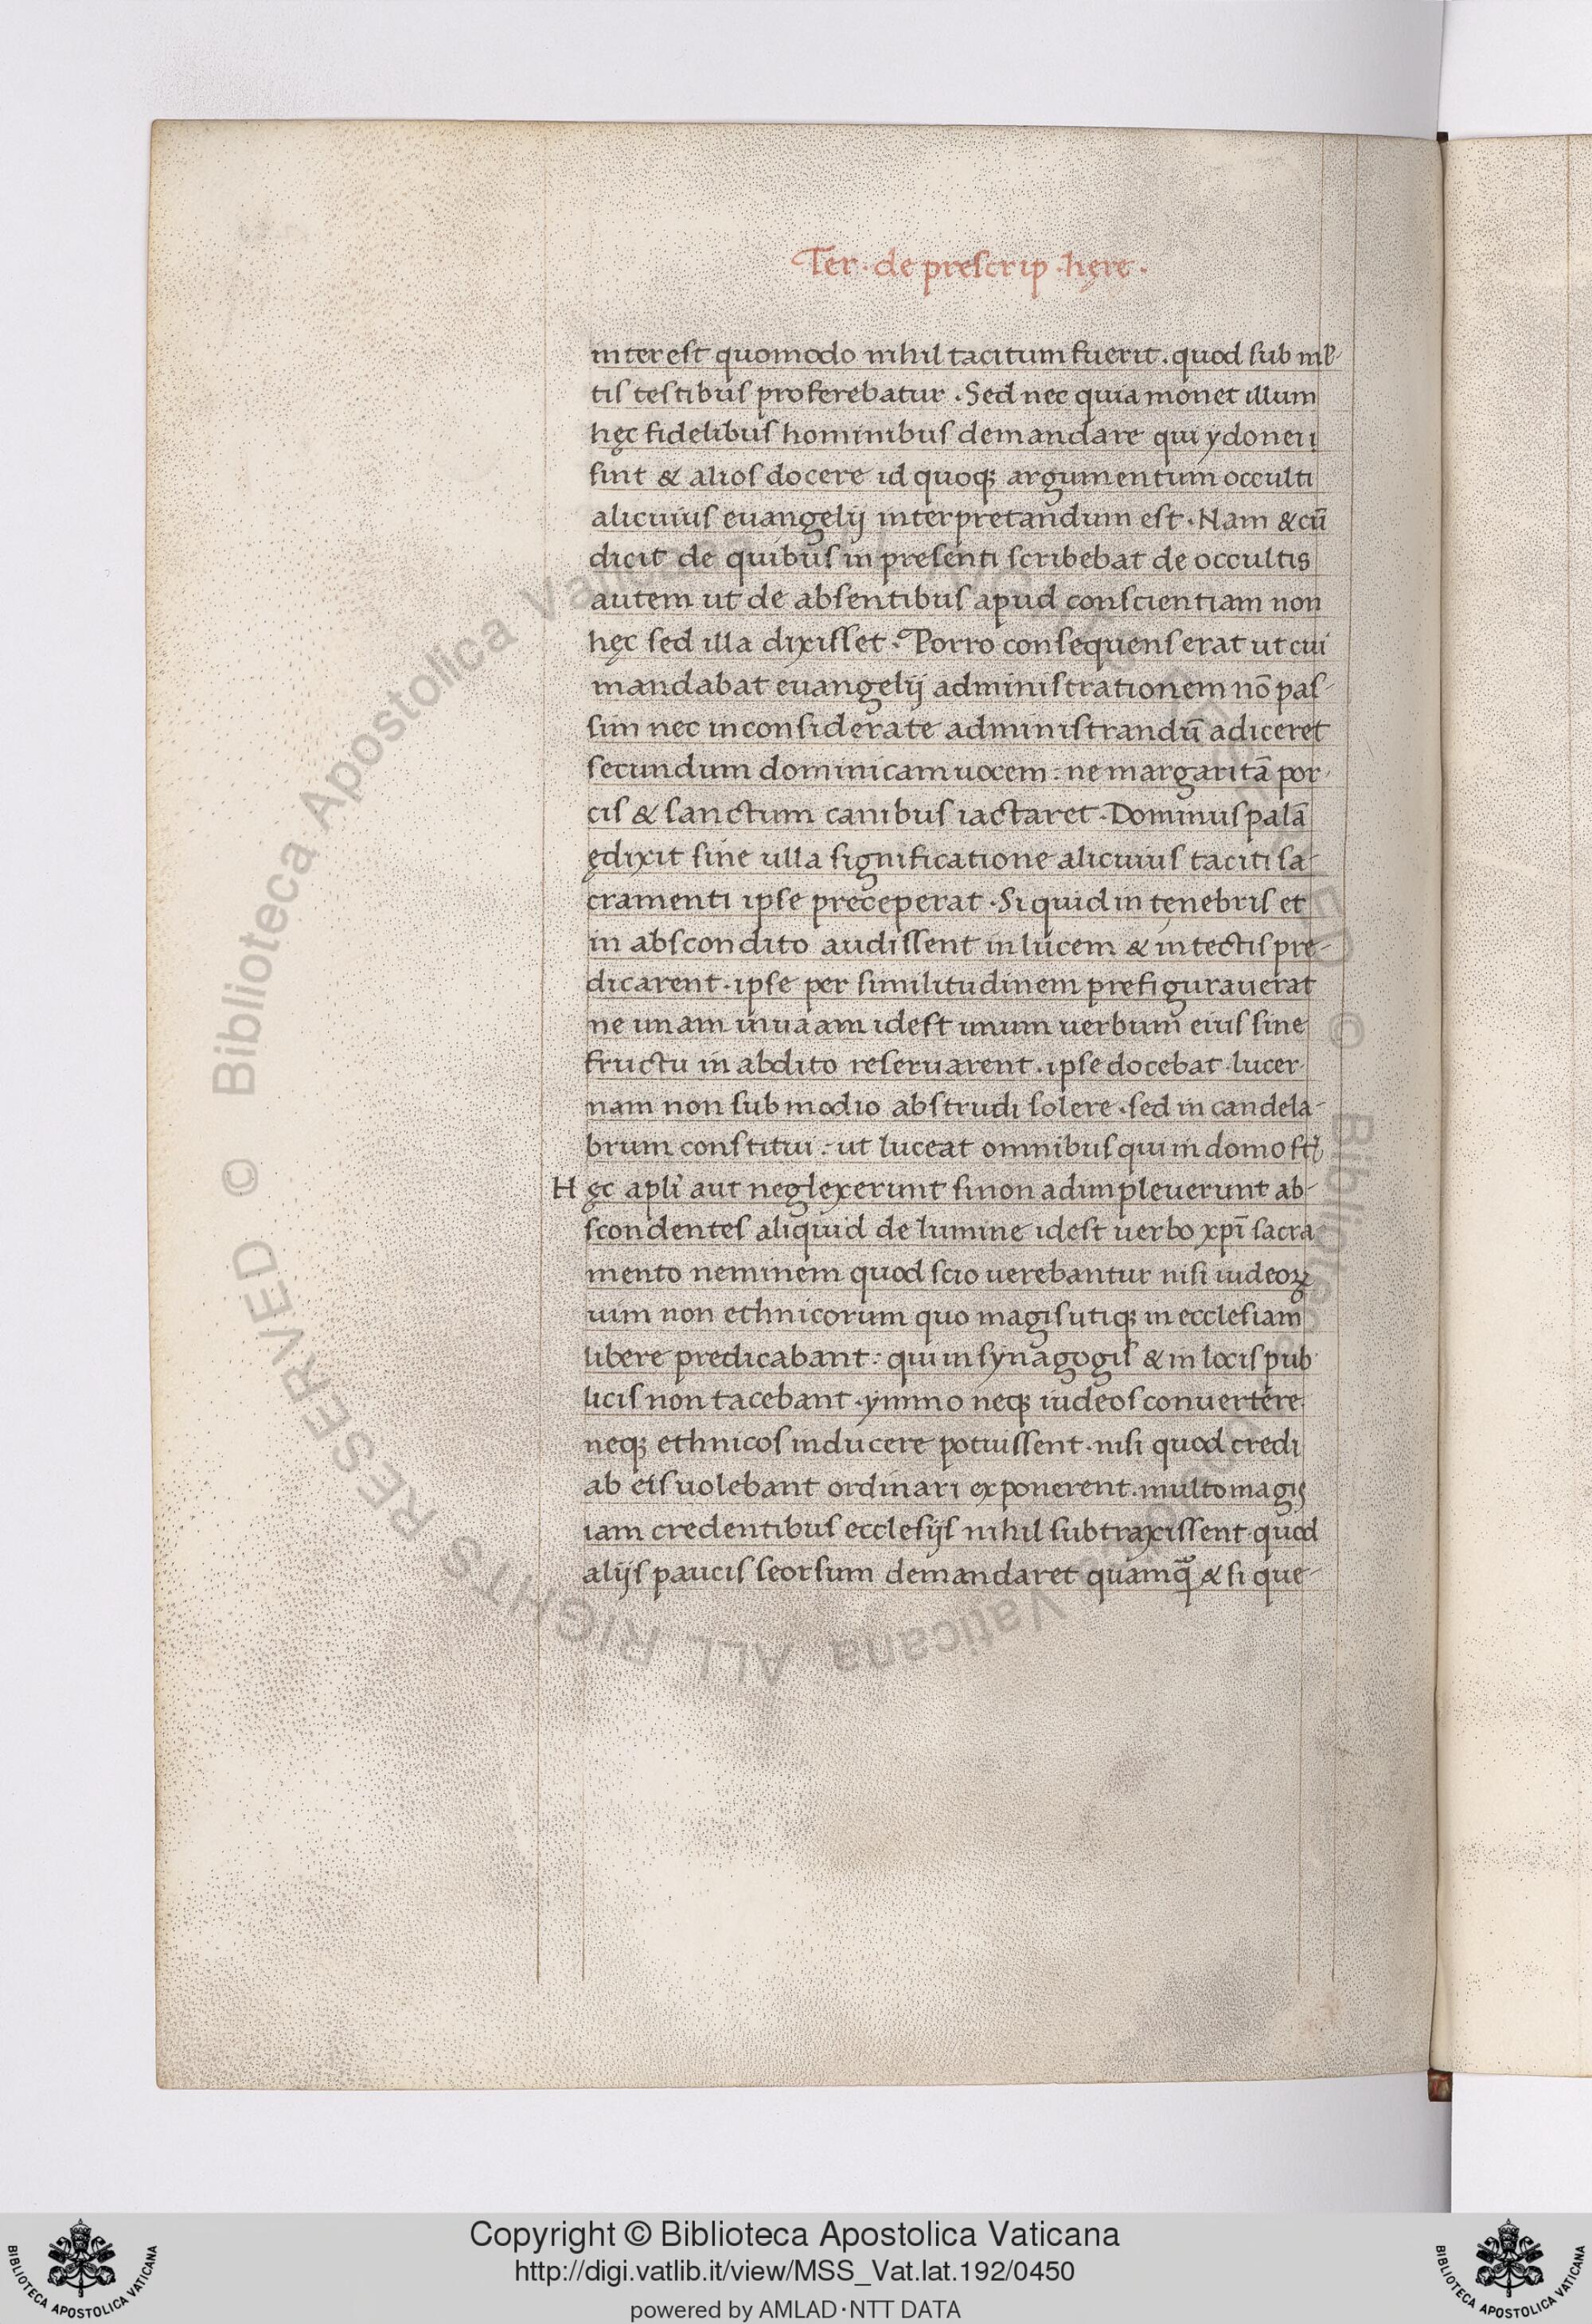 Ter · de prescrip · hęre ·
interest quomodo nihil tacitum fuerit . quod sub ml̄-
tis testibus proferebatur . Sed nec quia monet illum
hęc fidelibus hominibus demandare qui ydonei
sint & alios docere id quoq; argumentum occulti
alicuius euangelij interpretandum est . Nam & cū
dicit de quibus in presenti scribebat de occultis
autem ut de absentibus apud conscientiam non
hęc sed illa dixisset . Porro consequens erat ut cui
mandabat euangelij administrationem nō pas-
sim nec inconsiderate administrandū adiceret
secundum dominicam uocem : ne margaritā por-
cis & sanctum canibus iactaret . Dominus palā
ędixit sine ulla significatione alicuius taciti sa-
cramenti ipse preceperat . Si quid in tenebris et
in abscondito audissent in lucem & in tectis pre-
dicarent . ipse per similitudinem prefigurauerat
ne unam mnaam idest unum uerbum eius sine
fructu in abdito reseruarent . ipse docebat lucer-
nam non sub modio abstrudi solere . sed in candela-
brum constitui : ut luceat omnibus qui in domo st̄
Hęc apli aut neglexerunt sinon adimpleuerunt ab-
scondentes aliquid de lumine idest uerbo xpī sacra
mento neminem quod scio uerebantur nisi iudeoꝝ
uim non ethnicorum quo magis utiq; in ecclesiam
libere predicabant : qui in synagogis & in locis pub
licis non tacebant . ymmo neq; iudeos conuertere
neq; ethnicos inducere potuissent . nisi quod credi
ab eis uolebant ordinari exponerent . multo magis
iam credentibus ecclesijs nihil subtraxissent quod
alijs paucis seorsum demandaret quamq̄ & si que-
© Biblioteca Apostolica Vaticana ALL RIGHTS RESERVED
Copyright © Biblioteca Apostolica Vaticana
http://digi.vatlib.it/view/MSS_Vat.lat.192/0450
powered by AMLAD·NTT DATA
BIBLIOTECA APOSTOLICA VATICANA
BIBLIOTECA APOSTOLICA VATICANA